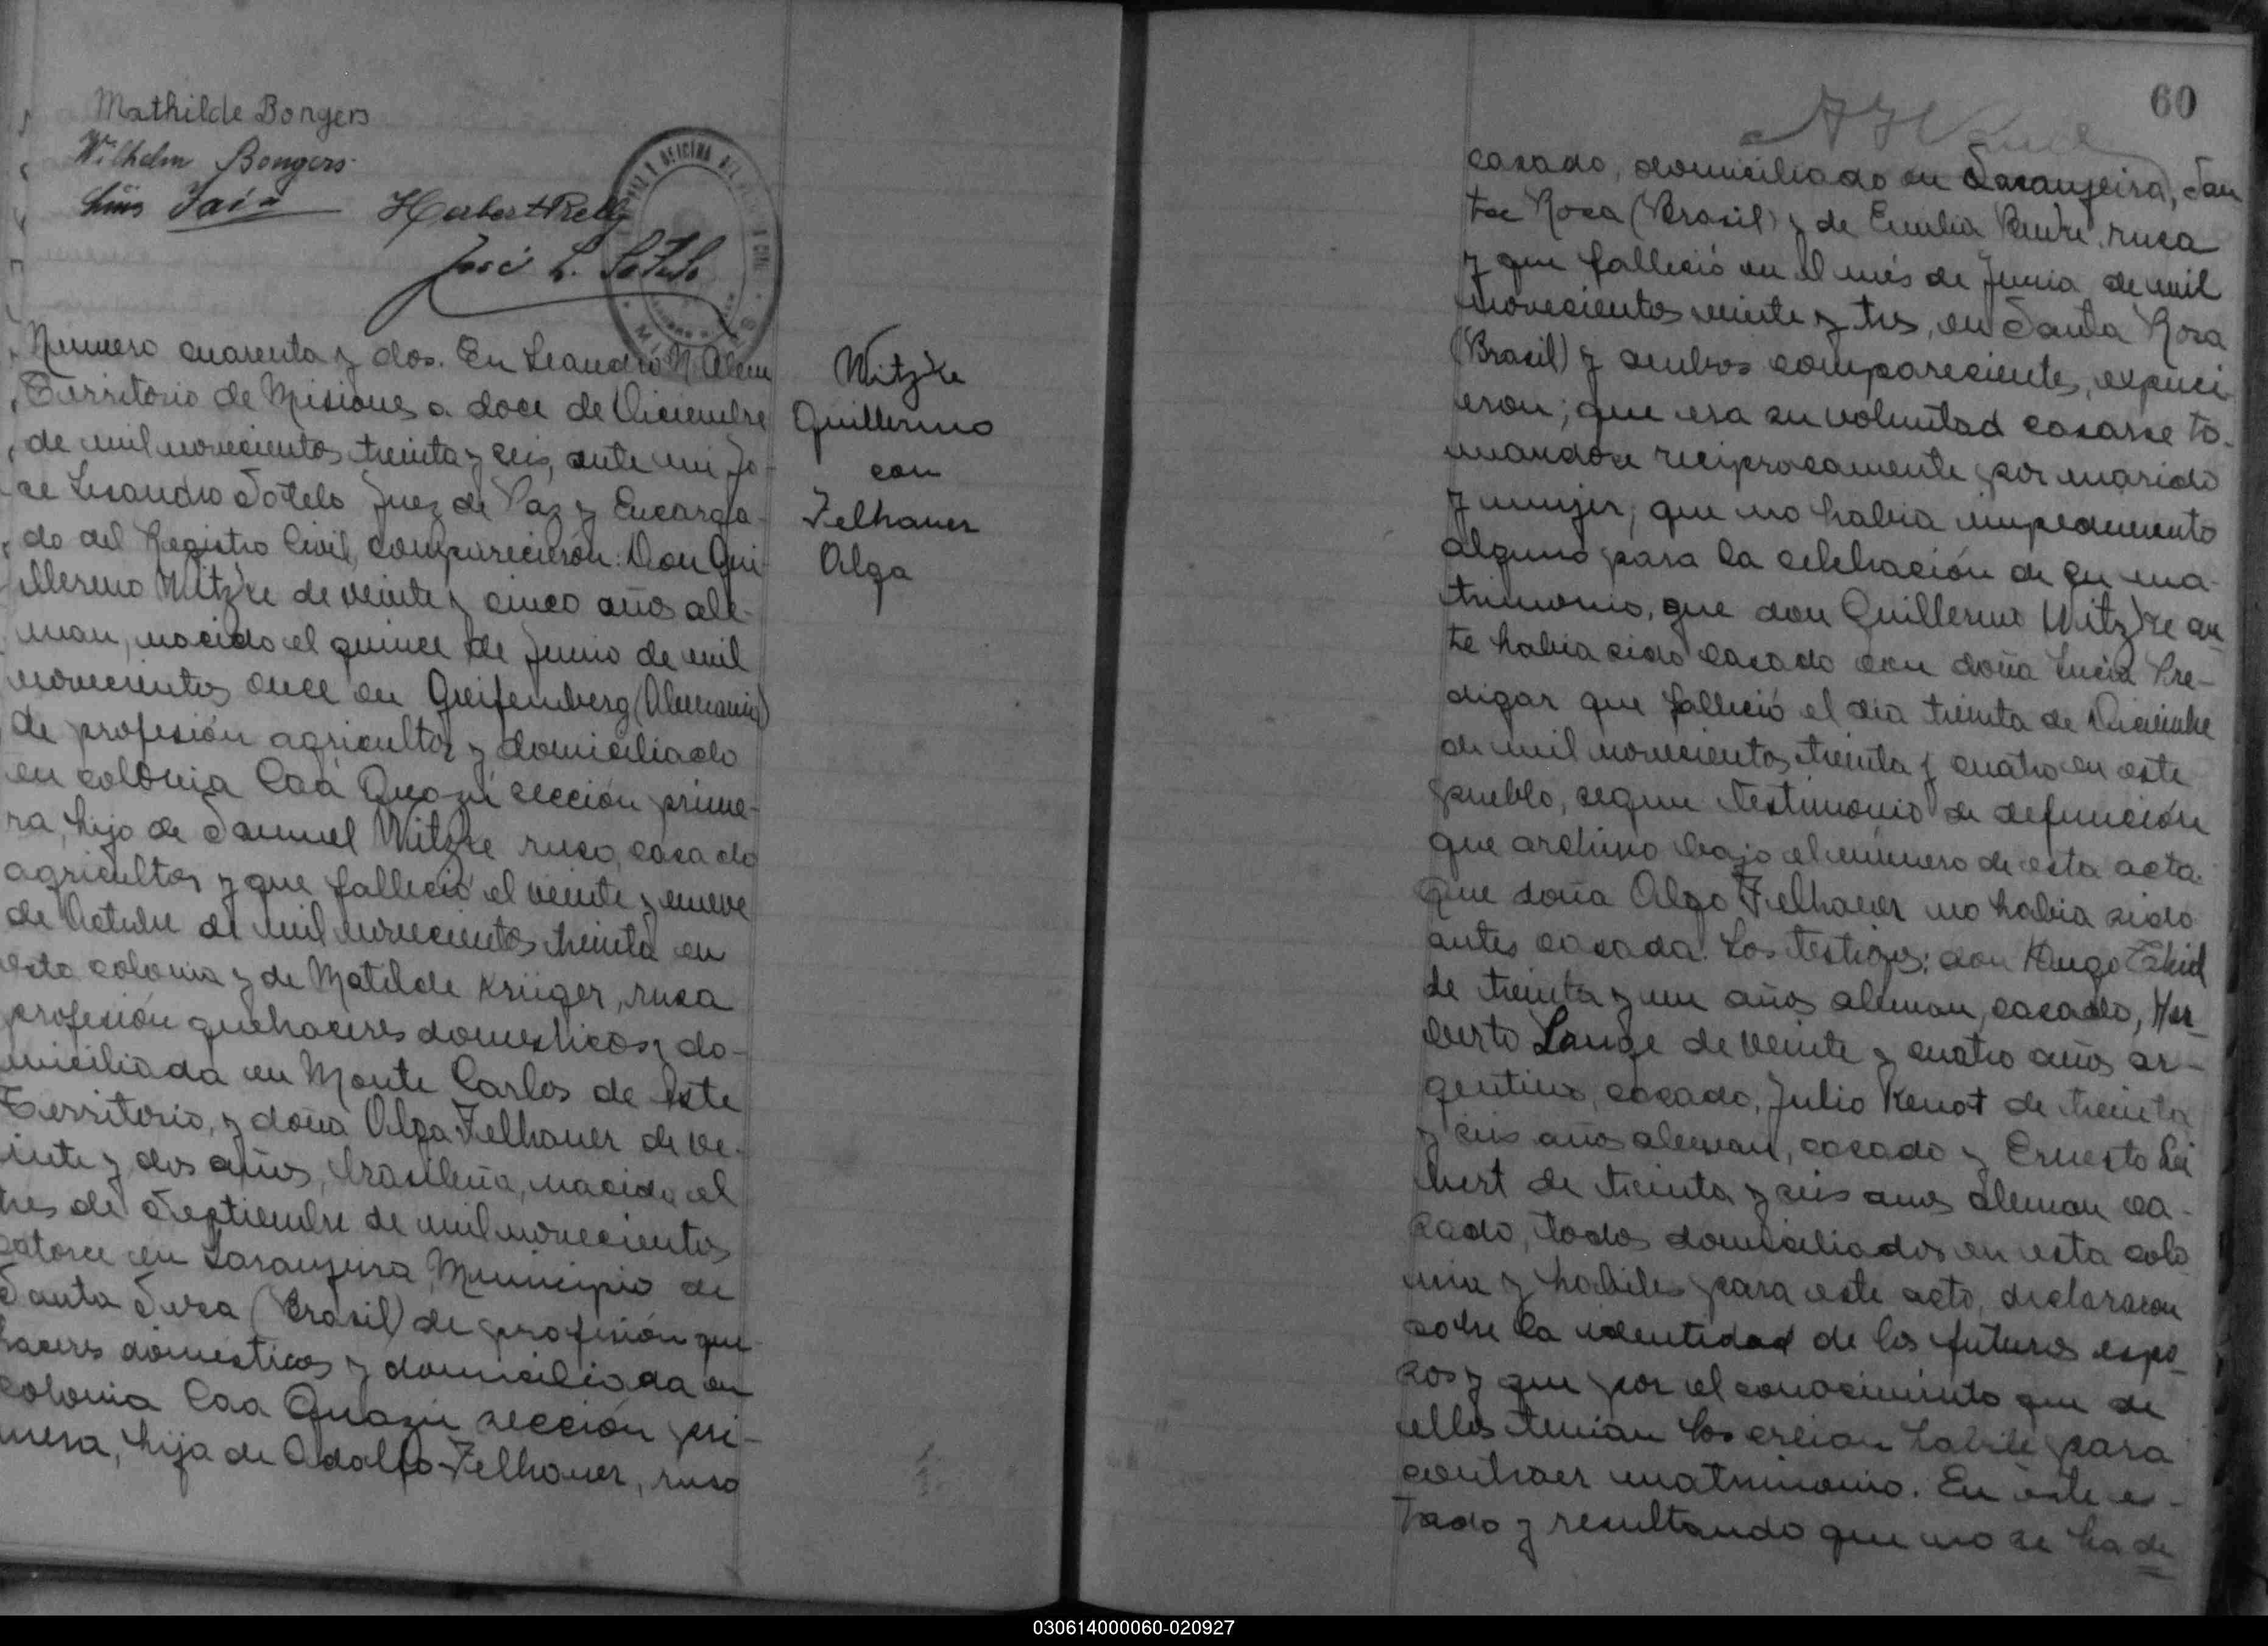 Mathilde Bongers
Wilhelm Bongers
Luis
José L. Sotelo
Numero cuarenta y dos. En Leandro N. Alem
Territorio de Misiones a doce de Diciembre
de mil novecientos treinta y seis, ante mi Jo-
se Lisandro Sotelo Juez de Paz y Encarga-
do del Registro Civil, comparecieron: Don Gui-
llermo Witzke de veinte y cinco años ale-
man, nacido el quince de Junio de mil
novecientos once en Greifenberg (Alemania)
de profesión agricultor y domiciliado
en colonia Caá Guazú sección prime-
ra, hijo de Samuel Witzke ruso, casado
agricultor y que falleció el veinte y nueve
de Octubre de mil novecientos treinta en
esta colonia y de Matilde Krüger, rusa
profesión quehaceres domesticos y do-
miciliada en Monte Carlos de este
Territorio, y doña Olga Felhauer de ve-
inte y dos años, brasileña, nacida el
tres de Septiembre de mil novecientos
catorce en Laranjeira Municipio de
Santa (Brasil) de profesión que
haceres domesticos y domiciliada en
colonia Caa Guazu sección pri-
mera, hija de Adolfo Felhauer, ruso
Witzke
Guillermo
con
Felhauer
Olga
60
casado, domiciliado en Laranjeira, San
ta Rosa (Brasil) y de Emilia rusa
y que falleció en el mes de Junio de mil
novecientos veinte y tres, en Santa Rosa
(Brasil) y ambos comparecientes, expusi
eron; que era su voluntad casarse to-
mandose reciprocamente por marido
y mujer, que no habia impedimento
alguno para la celebración de su ma-
trimonio, que don Guillermo Witzke an
te habia sido casado con doña Lucia Pre-
digar que falleció el dia treinta de Diciembre
de mil novecientos treinta y cuatro en este
pueblo, segun testimonio de defunción
que archivo bajo el número de esta acta.
Que doña Olga Felhauer no habia sido
antes casada. Los testigos: don Hugo
de treinta y un años aleman, casado, Her-
berto Lange de veinte y cuatro años ar-
gentino, casado, Julio Kenot de treinta
y seis años aleman, casado y Ernesto Lei
bert de treinta y seis anos aleman ca-
sado, todos domiciliados en esta colo
nia y habiles para este acto, declararon
sobre la identidad de los futuros espo-
sos y que por el conocimiento que de
ellos tenian los creian habile para
contraer matrimonio. En este es-
tado y resultando que no se ha de
030614000060-020927